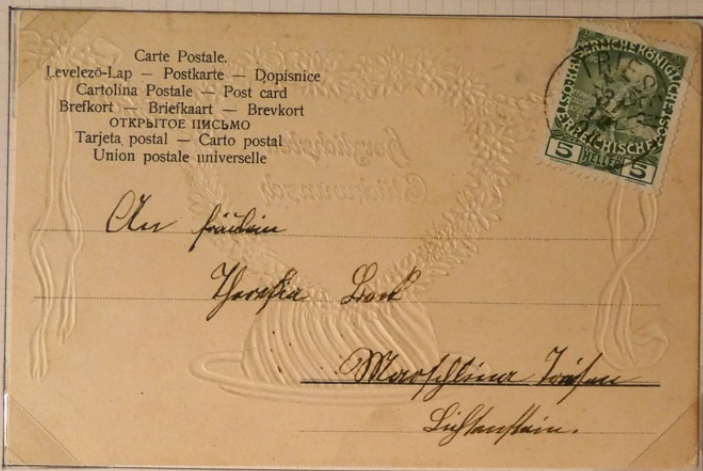 Carte Postale.
Levelező-Lap — Postkarte — Dopisnice
Cartolina Postale — Post card
Brefkort — Briefkaart — Brevkort
ОТКРЫТОЕ ПИСЬМО
Tarjeta postal — Carto postal
Union postale universelle
TRIESEN
KAISERLICHE KÖNIGLICHE
ÖSTERREICHISCHE
5 HELLER 5
Herzlichsten
Glückwunsch
An Fräulein
Theresia
Triesen
Lichtenstein.